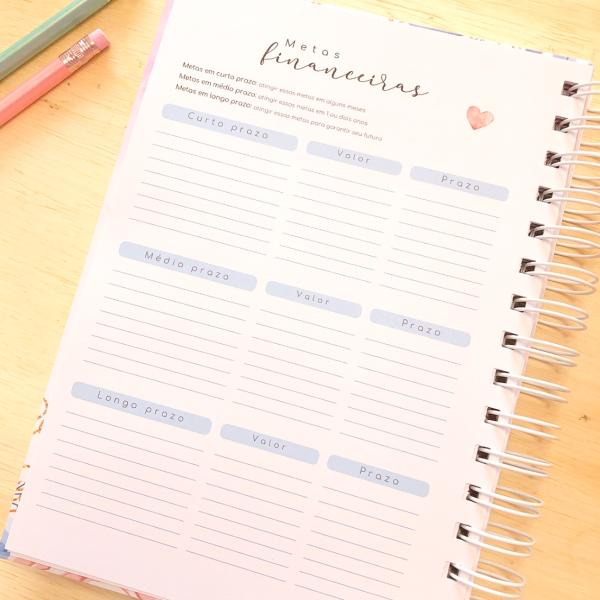 Metas
financeiras
Metas em curto prazo: atingir essas metas em alguns meses
Metas em médio prazo: atingir essas metas em 1 ou dois anos
Metas em longo prazo: atingir essas metas para garantir seu futuro
Curto prazo Valor Prazo
Médio prazo Valor Prazo
Longo prazo Valor Prazo